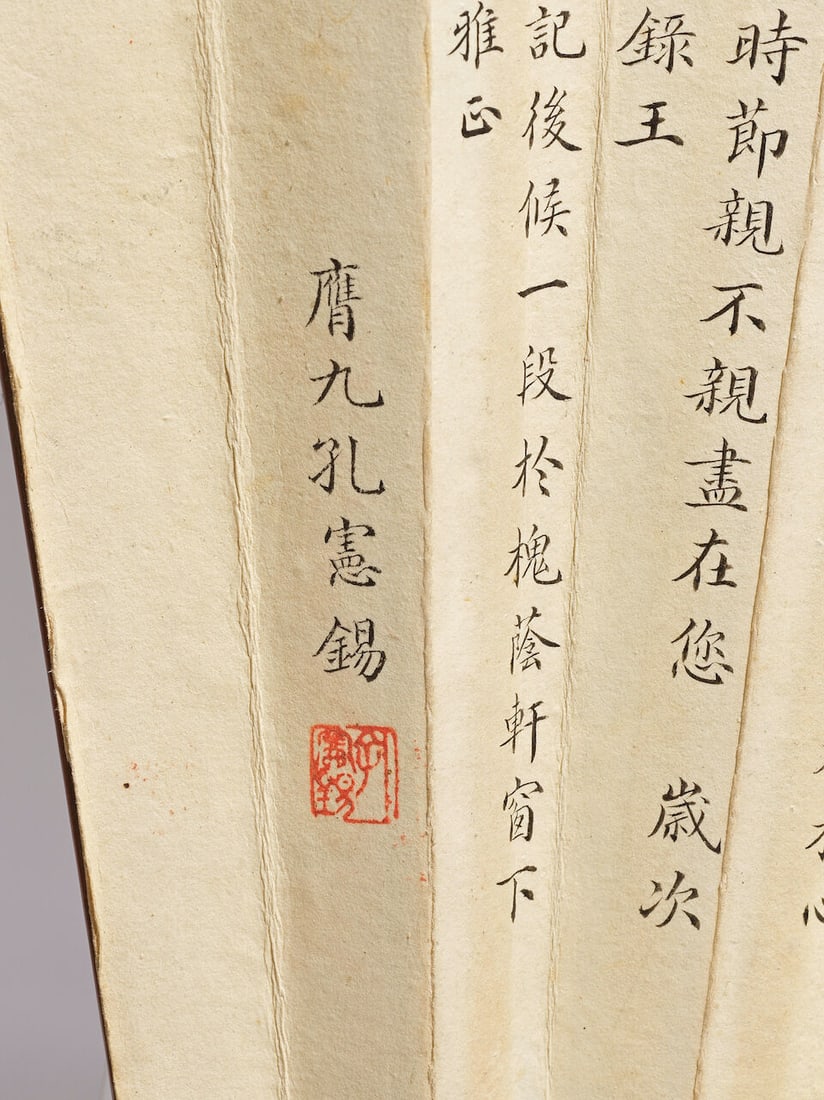 時節親不親盡在您 歲次
錄王
記後候一段於槐蔭軒窗下
雅正
膺九孔憲錫
孔憲錫